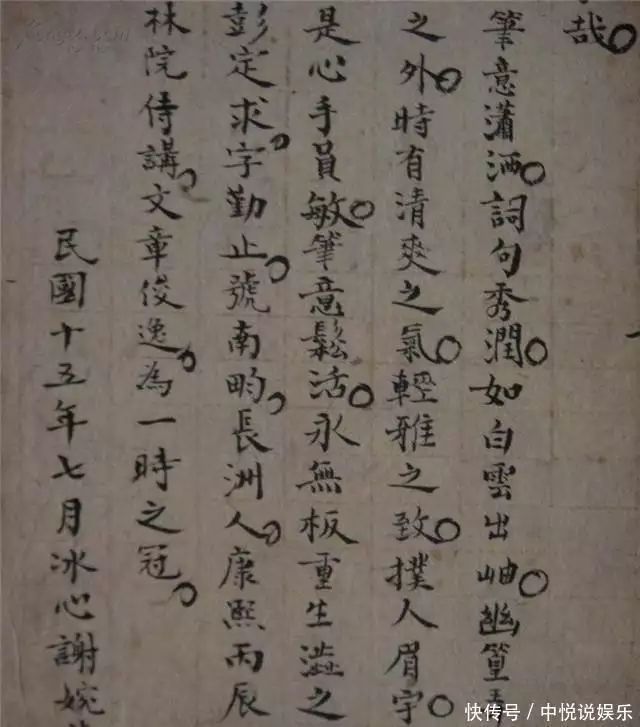 哉
筆意瀟洒詞句秀潤如白雲出岫幽篁
之外時有清爽之氣輕雅之致撲人眉宇
是心手員敏筆意鬆活永無板重生澁之
彭定求字勤止號南畇長洲人康熙丙辰
林院侍講文章俊逸為一時之冠
民國十五年七月冰心謝婉
快传号/中悦说娱乐